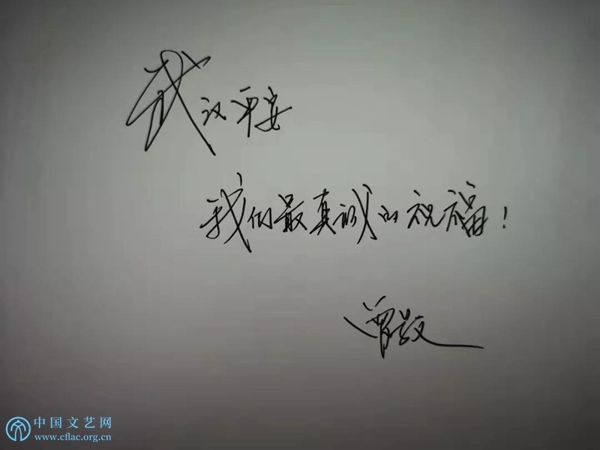 武汉平安
我们最真诚的祝福!
中国文艺网
www.cflac.org.cn